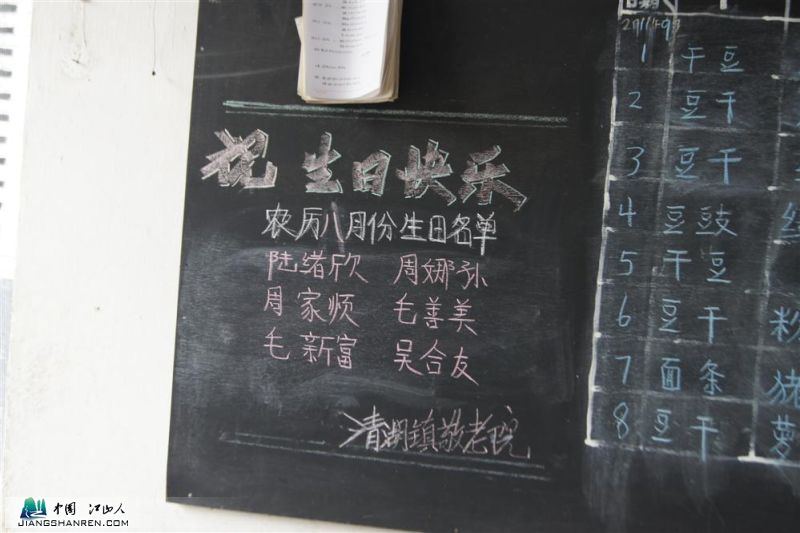 祝 生日快乐
农历八月份生日名单
陆绪欣 周娜孙
周家顺 毛善美
毛新富 吴合友
清湖镇敬老院
日期
1 干豆
2 豆干
3 豆干
4 豆豉
5 干豆
6 豆干 粉
7 面条 猪
8 豆干 萝
中国 江山人
JIANGSHANREN.COM